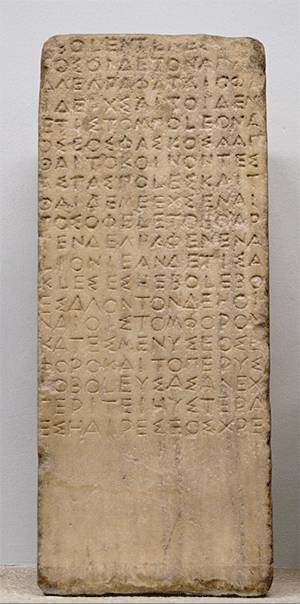 ΒΟLΕΝΤΕΜΕΣ
ΟΣΟΙΔΕΤΟΝΑΠ
ΑΛΕΛΡΑΦΑΤΑΙΟΦ
ΙΔΕΧΣΑΙΤΟΙΔΕΜ
ΕΤΙΣΤΟΜΠΟLΕΟΝΑ
ΟΣΕΟΣΦΑΣΚΟΣΑΑΠ
ΘΑΙΤΟΚΟΙΝΟΝΤΕΣ
ΣΤΑΣΠΟLΕΣΚΑΙΤ
ΘΑΙΔΕΜΕΕΧΣΕΝΑΙ
ΤΟΣΟΦΕLΕΤΟΗΟΑΡ
ΤΕΝΔΕΛΡΑΦΕΝΕΝΑ
LΙΟΝΙΕΑΝΔΕΤΙΣΑ
ΣLΕΣΕΣΗΕΒΟLΕΒΟ
ΕΣΔLΟΝΤΟΝΔΕΗΟΙ
ΝΑΙΟΙΣΤΟΜΦΟΡΟΥ
ΚΑΤΕΣΜΕΝΥΣΕΟΣ
ΦΟΡΟΚΑΙΤΟΠΕΡΥΣ
ΟΒΟLΕΥΣΑΣΑΝΕΧ
ΠΕΡΙΤΕΙΗΥΣΤΕΡΑ
ΕΣΗΑΙΡΕΣΕΟΣΧΡΕ